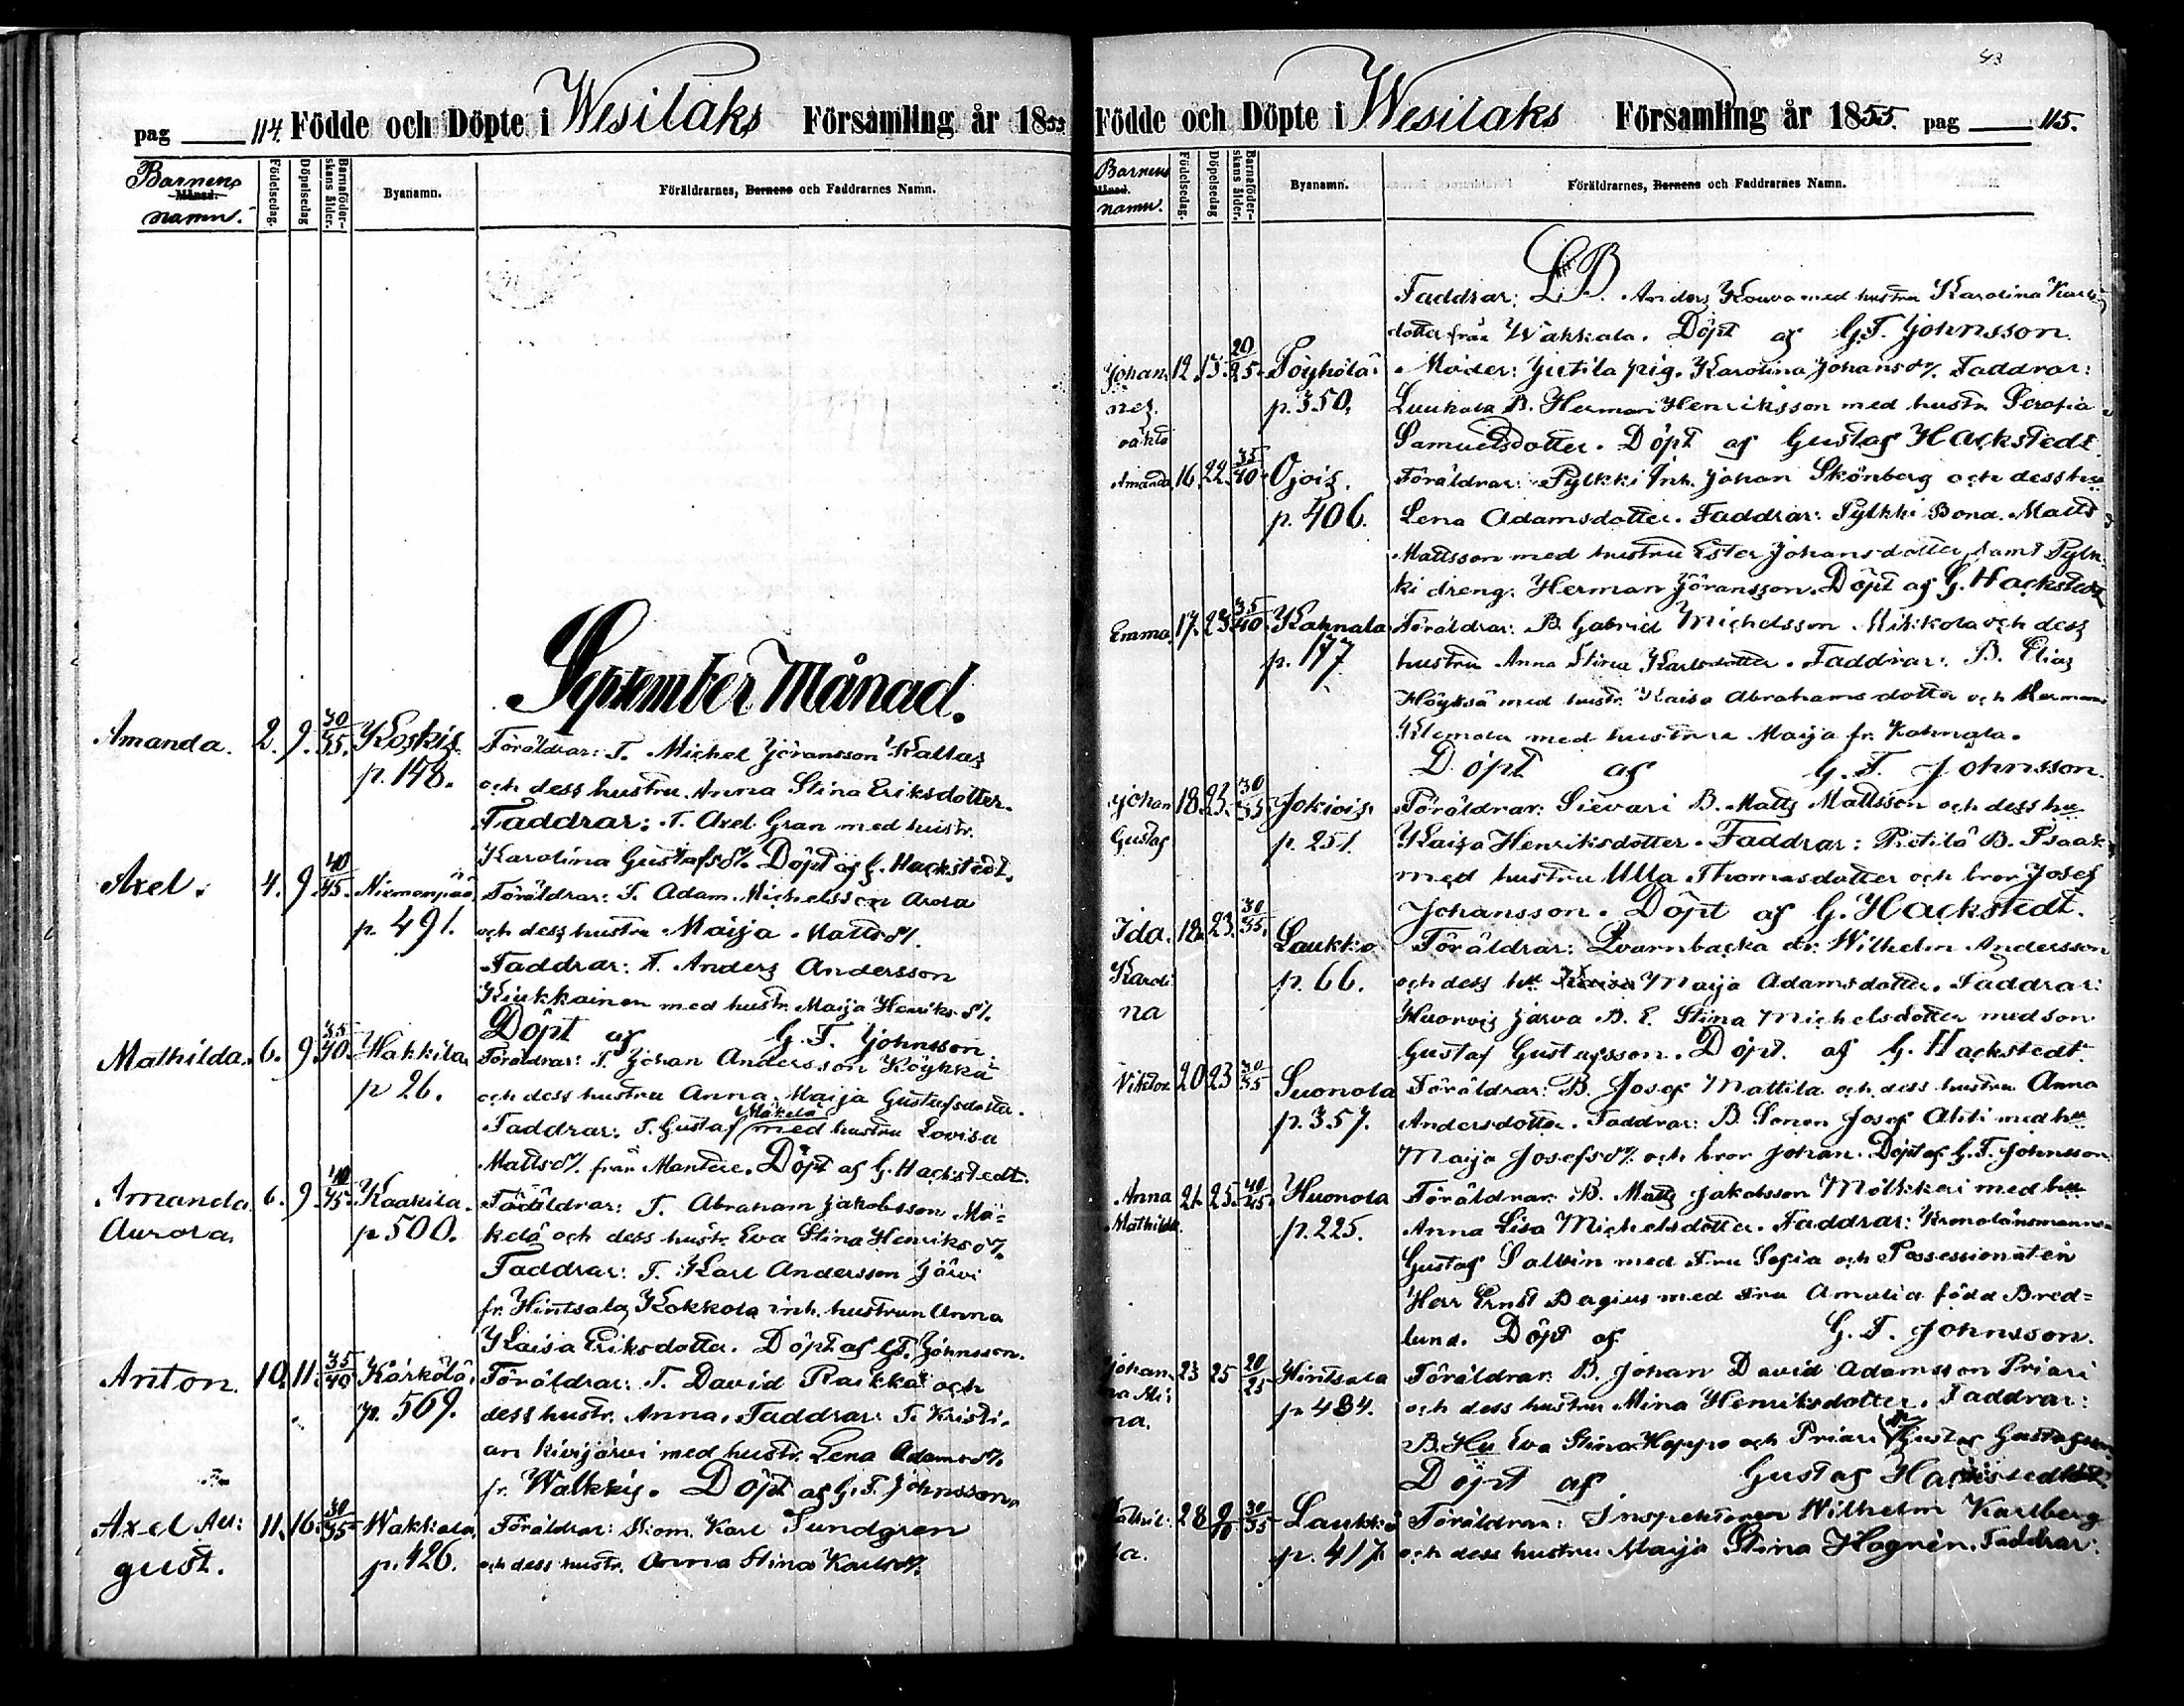 pag 114. Födde och Döpte i Wesilaks Församling år 1855
Barnens
Månad.
namn.
Födelsedag.
Döpelsedag
Barnaföder-
skans ålder.
Byanamn.
Föräldrarnes, Barnens och Faddrarnes Namn.
September Månad.
Amanda. 2. 9. 30/35. Koskis Föräldrar: T. Michel Jöransson Kallas
p. 148. och dess hustru Anna Stina Eriksdotter.
Faddrar: T. Axel Gran med hustr.
Karolina Gustafsd/r. Döpt af G. Hackstedt.
Axel. 4. 9. 40/45. Niemenpää Föräldrar: T. Adam Michelsson Arola
p. 491. och dess hustru Maija Mattsd/r.
Faddrar: T. Anders Andersson
Kiukkainen med hustr. Maija Henriksd/r.
Döpt af G. F. Johnsson.
Mathilda. 6. 9. 35/40. Wakkila Föräldrar: T. Johan Andersson Köykkä
p 26. och dess hustru Anna Maija Gustafsdotter.
Faddrar: T. Gustaf Mäkelä med hustru Lovisa
Mattsd/r. från Mantere. Döpt af G. Hackstedt.
Amanda 6. 9. 40/45. Kaakila. Föräldrar: T. Abraham Jakobsson Mä-
Aurora. p 500. kelä och dess hustr. Eva Stina Henriksd/r.
Faddrar: T. Karl Andersson Järvi
fr. Hintsala, Kokkola inh. hustrun Anna
Kaisa Eriksdotter. Döpt af G.F. Johnsson.
Anton. 10. 11. 35/40 Kärkölä. Föräldrar: T. David Raikka och
p. 569. dess hustr. Anna. Faddrar: T. Kristi-
an Kivijärvi med hustr. Lena Adamsd/r.
fr. Walkkis. Döpt af G. F. Johnsson.
Axel Au: 11. 16. 30/35. Wakkala, Föräldrar: Skom. Karl Sundgren
gust. p. 426. och dess hustr. Anna Stina Karlsd/r.
43
Födde och Döpte i Wesilaks Församling år 1855. pag 115.
Barnens
Månad.
namn.
Födelsedag.
Döpelsedag
Barnaföder-
skans ålder.
Byanamn.
Föräldrarnes, Barnens och Faddrarnes Namn.
Faddrar: L. B. Anders Kouvo med hustru Karolina Karls
dotter från Wakkala. Döpt af G.F. Johnsson.
Johan- 12. 15. 20/25. Pöyhölä. Moder: Jutila pig. Karolina Johansd/r. Faddrar:
nes p. 350. Luukala B. Herman Henriksson med hustr. Serafia
oäkta Samuelsdotter. Döpt af Gustaf Hackstedt
Amanda 16. 22. 35/40. Ojois. Föräldrar: Pylkki Inh. Johan Skönberg och dess hu
p. 406. Lena Adamsdotter. Faddrar: Pylkki Bond. Matts
Mattsson med hustru Ester Johansdotter, samt Pylk-
ki dreng. Herman Jöransson. Döpt af G. Hackstedt
Emma. 17. 23. 35/40. Kahnala Föräldrar: B. Gabriel Michelsson Mikkola och dess
p. 177 hustru Anna Stina Karlsdotter. Faddrar: B. Elias
Höyksä med hustr. Kaisa Abrahamsdotter och Herman
Klemola med hustru Maija fr. Kahnala.
Döpt af G. F. Johnsson.
Johan 18. 23. 30/35 Jokiois. Föräldrar: Sievari B. Matts Mattsson och dess hu
Gustaf p. 251. Kaisa Henriksdotter. Faddrar: Pietilä B. Isaak
med hustru Ulla Thomasdotter och bror Josef
Johansson. Döpt af G. Hackstedt.
Ida 18. 23. 30/35. Laukko Föräldrar: Qvarnbacka dr. Wilhelm Andersson
Karoli p. 66. och dess hu Maija Adamsdotter. Faddrar:
na Huorvis Järva B. E. Stina Michelsdotter med son
Gustaf Gustafsson. Döpt af G. Hackstedt.
Viktor 20 23 30/35 Suonola Föräldrar: B. Josef Mattila och dess hustru Anna
p. 357. Andersdotter. Faddrar: B. Sonen Josef Ahti med hu
Maija Josefsd/r. och bror Johan. Döpt af G. F. Johnsson.
Anna 21. 25. 40/45. Huonola Föräldrar: B. Matts Jakobsson Mölkkeri med hu
Mathilda. p. 225. Anna Lisa Michelsdotter. Faddrar: Kronolänsmannen
Gustaf Salvin med Fru Sofia och Possessionaten
Herr Ernst Bagius med Fru Amalia född Bred-
lund. Döpt af G. F. Johnsson.
Johan- 23 25 20/25 Hintsala Föräldrar: B. Johan David Adamsson Priari
na Mi- p. 484. och dess hustru Mina Henriksdotter. Faddrar:
na. B. Hu Eva Stina Hoppo och Priari Gustaf Gustafsson
Döpt af Gustaf Hackstedt
Mathil- 28 30/35 Laukko Föräldrar: Inspektoren Wilhelm Karlberg
da. p. 417. och dess hustru Maija Stina Hagrén. Faddrar: